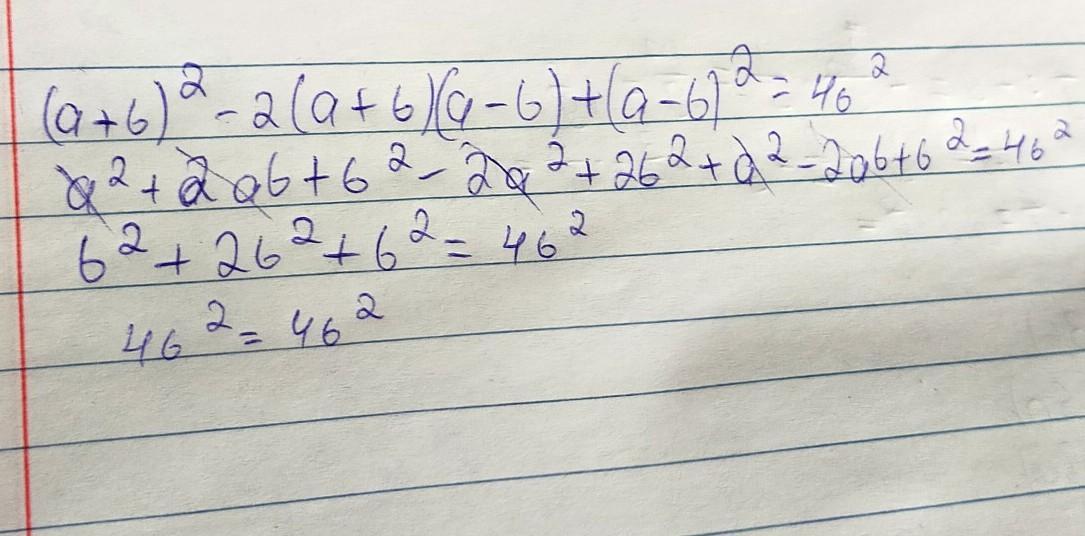 (a+b)² - 2(a+b)(a-b)+(a-b)² = 4b²
a² + 2ab + b² - 2a² + 2b² + a² - 2ab + b² = 4b²
b² + 2b² + b² = 4b²
4b² = 4b²